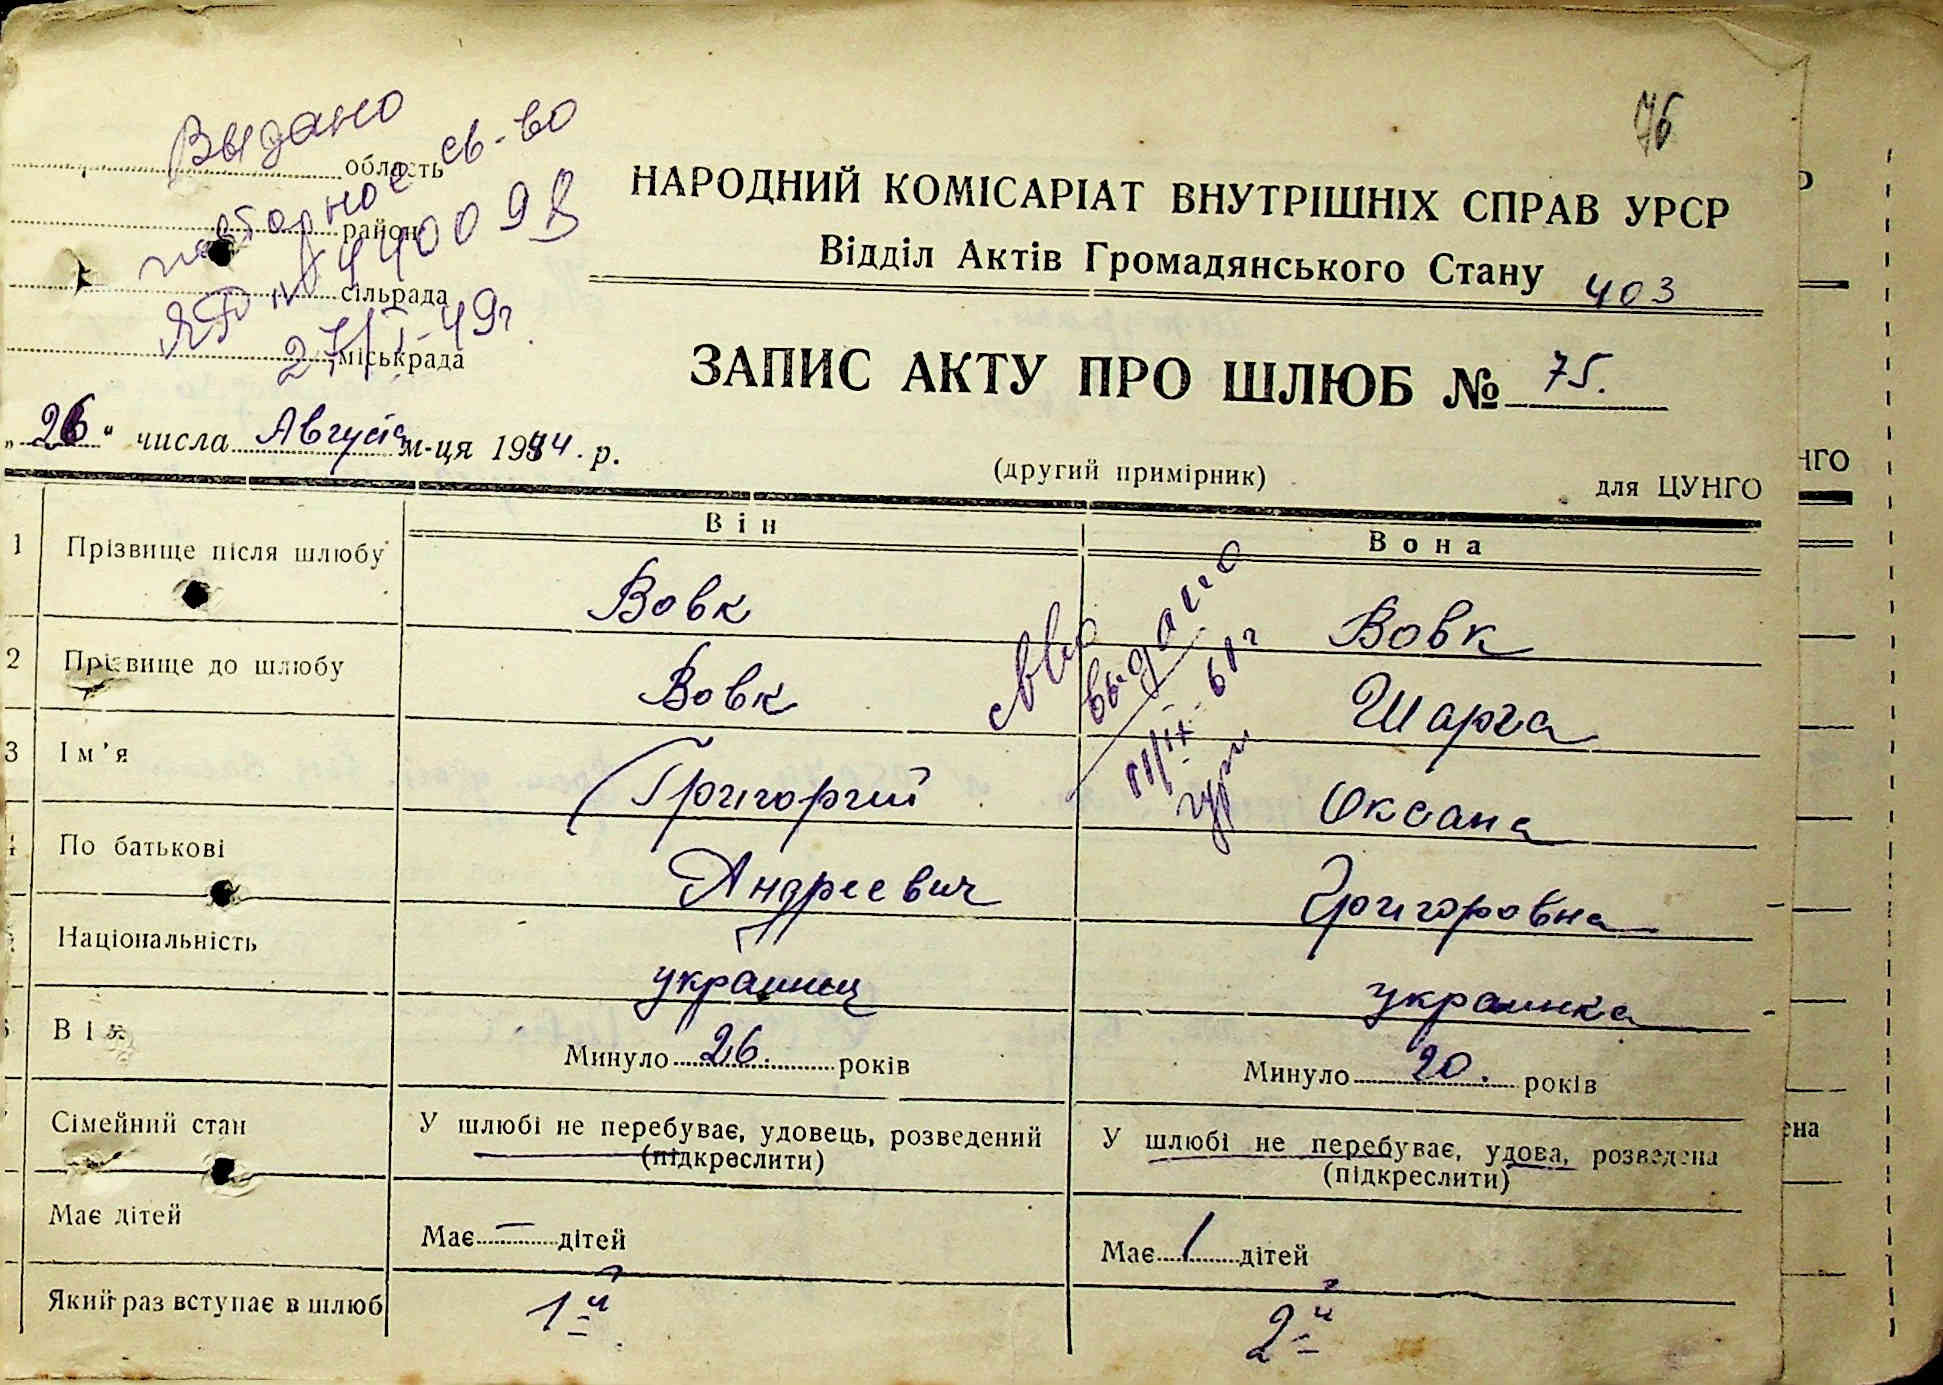 76
Выдано
область св-во
повторное
район
ЯР № 440098
сільрада
27/I-49г
міськрада
НАРОДНИЙ КОМІСАРІАТ ВНУТРІШНІХ СПРАВ УРСР
Відділ Актів Громадянського Стану 403
ЗАПИС АКТУ ПРО ШЛЮБ № 75.
„26“ числа Августа м-ця 1944 р.
(другий примірник)
для ЦУНГО
НГО
Він
Вона
1 Прізвище після шлюбу Вовк Вовк
2 Прізвище до шлюбу Вовк Шарга
выдано
61г
3 Ім'я Григоргий Оксана
4 По батькові Андреевич Григоровна
Національність украинец украинка
Вік Минуло 26 років Минуло 20. років
Сімейний стан У шлюбі не перебуває, удовець, розведений У шлюбі не перебуває, удова, розведена
(підкреслити) (підкреслити)
ена
Має дітей Має — дітей Має 1 дітей
Який раз вступає в шлюб 1й 2й